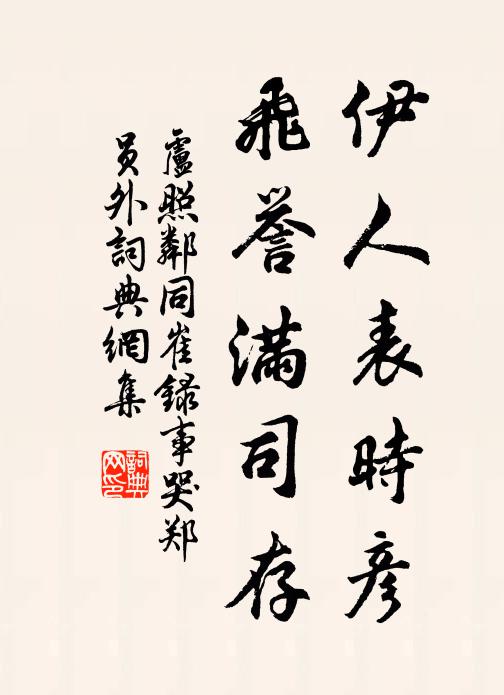 伊人表時彥
飛誉滿司存
盧照鄰同崔錄事哭郑
員外詞典網集
詞典
网印